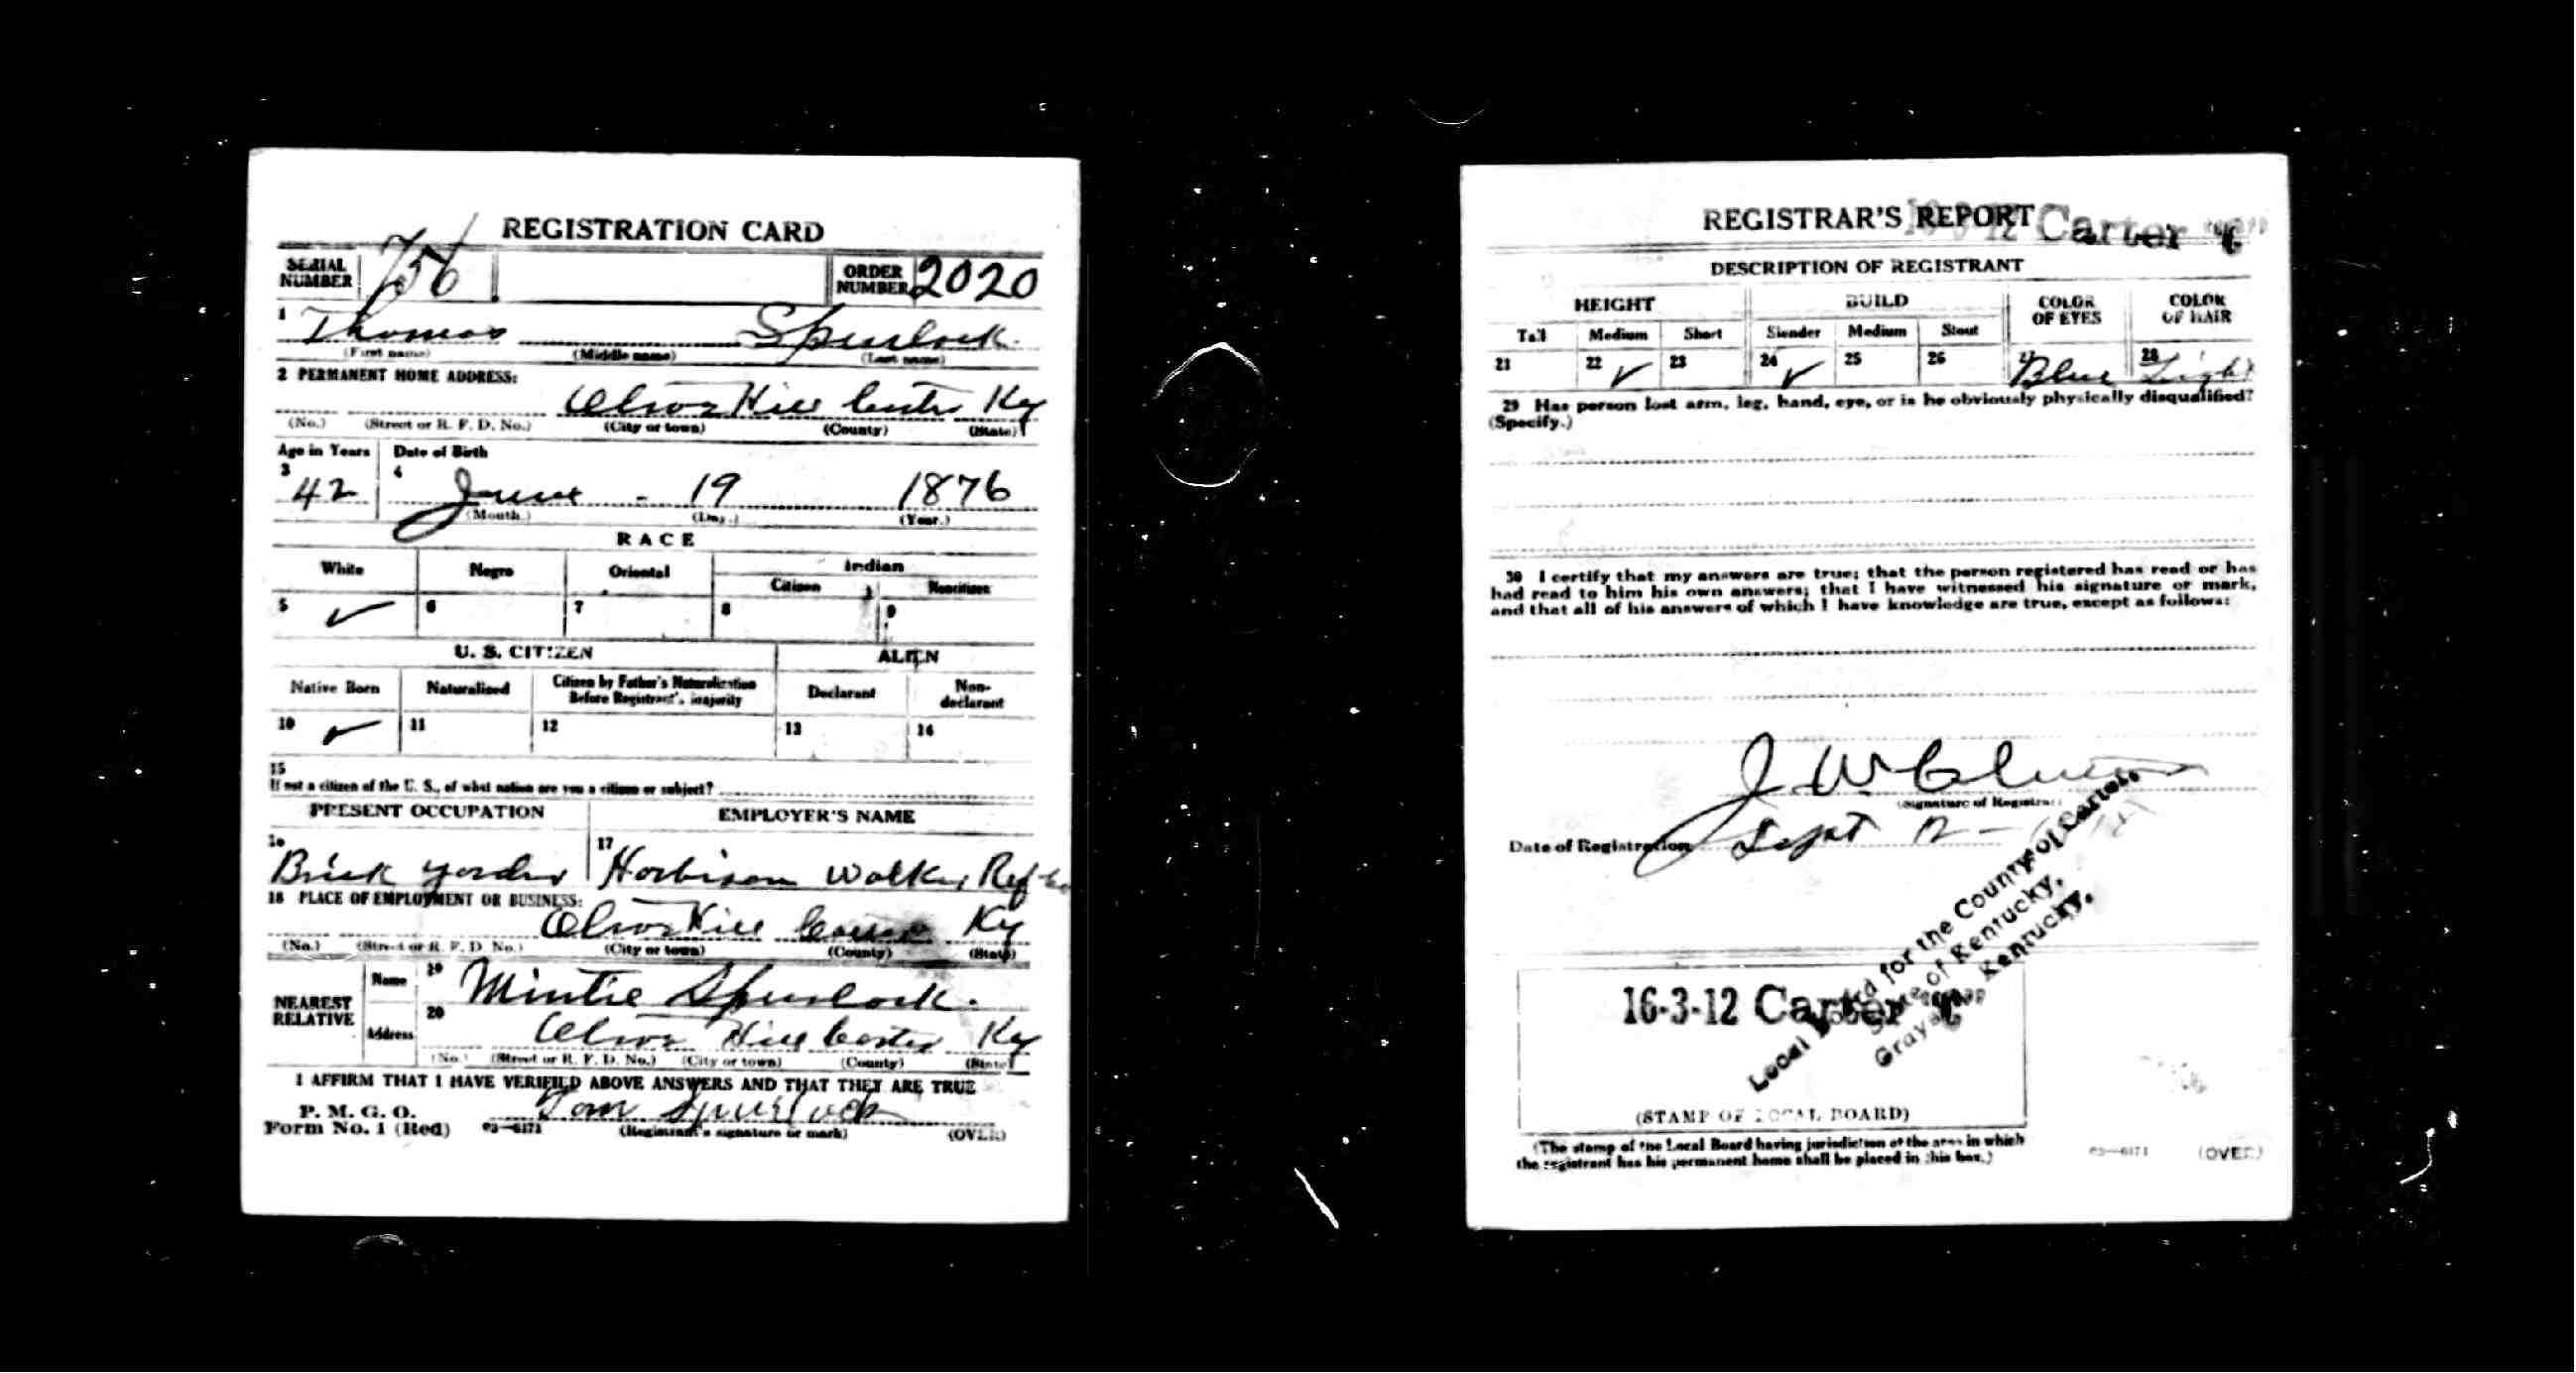 REGISTRATION CARD
SERIAL NUMBER 756 ORDER NUMBER 2020
1 Thomas Spurlock.
(First name) (Middle name) (Last name)
2 PERMANENT HOME ADDRESS:
Olive Hill Carter Ky
(No.) (Street or R. F. D. No.) (City or town) (County) (State)
Age in Years Date of Birth
3 42 4 June - 19 1876
(Month.) (Day.) (Year.)
RACE
White Negro Oriental Indian
Citizen Noncitizen
5 ✓ 6 7 8 9
U. S. CITIZEN ALIEN
Native Born Naturalized Citizen by Father's Naturalization Before Registrant's majority Declarant Non-declarant
10 ✓ 11 12 13 14
15
If not a citizen of the U. S., of what nation are you a citizen or subject?
PRESENT OCCUPATION EMPLOYER'S NAME
16 Brick yarder 17 Harbison Walker Ref Co
18 PLACE OF EMPLOYMENT OR BUSINESS:
Olive Hill Carter Ky
(No.) (Street or R. F. D. No.) (City or town) (County) (State)
NEAREST RELATIVE
Name 19 Mintie Spurlock.
Address 20 Olive Hill Carter Ky
(No.) (Street or R. F. D. No.) (City or town) (County) (State)
I AFFIRM THAT I HAVE VERIFIED ABOVE ANSWERS AND THAT THEY ARE TRUE
P. M. G. O.
Form No. 1 (Red) 03—6171 Tom Spurlock
(Registrant's signature or mark) (OVER)
REGISTRAR'S REPORT Carter
DESCRIPTION OF REGISTRANT
HEIGHT BUILD COLOR OF EYES COLOR OF HAIR
Tall Medium Short Slender Medium Stout
21 22 ✓ 23 24 ✓ 25 26 27 Blue 28 Light
29 Has person lost arm, leg, hand, eye, or is he obviously physically disqualified?
(Specify.)
30 I certify that my answers are true; that the person registered has read or has
had read to him his own answers; that I have witnessed his signature or mark,
and that all of his answers of which I have knowledge are true, except as follows:
J. W.
(Signature of Registrar)
Date of Registration Sept 12 -
Local Board for the County of Carter,
State of Kentucky,
Grayson, Kentucky.
16-3-12 Carter
(STAMP OF LOCAL BOARD)
(The stamp of the Local Board having jurisdiction of the area in which
the registrant has his permanent home shall be placed in this box.)
03—6171 (OVER)